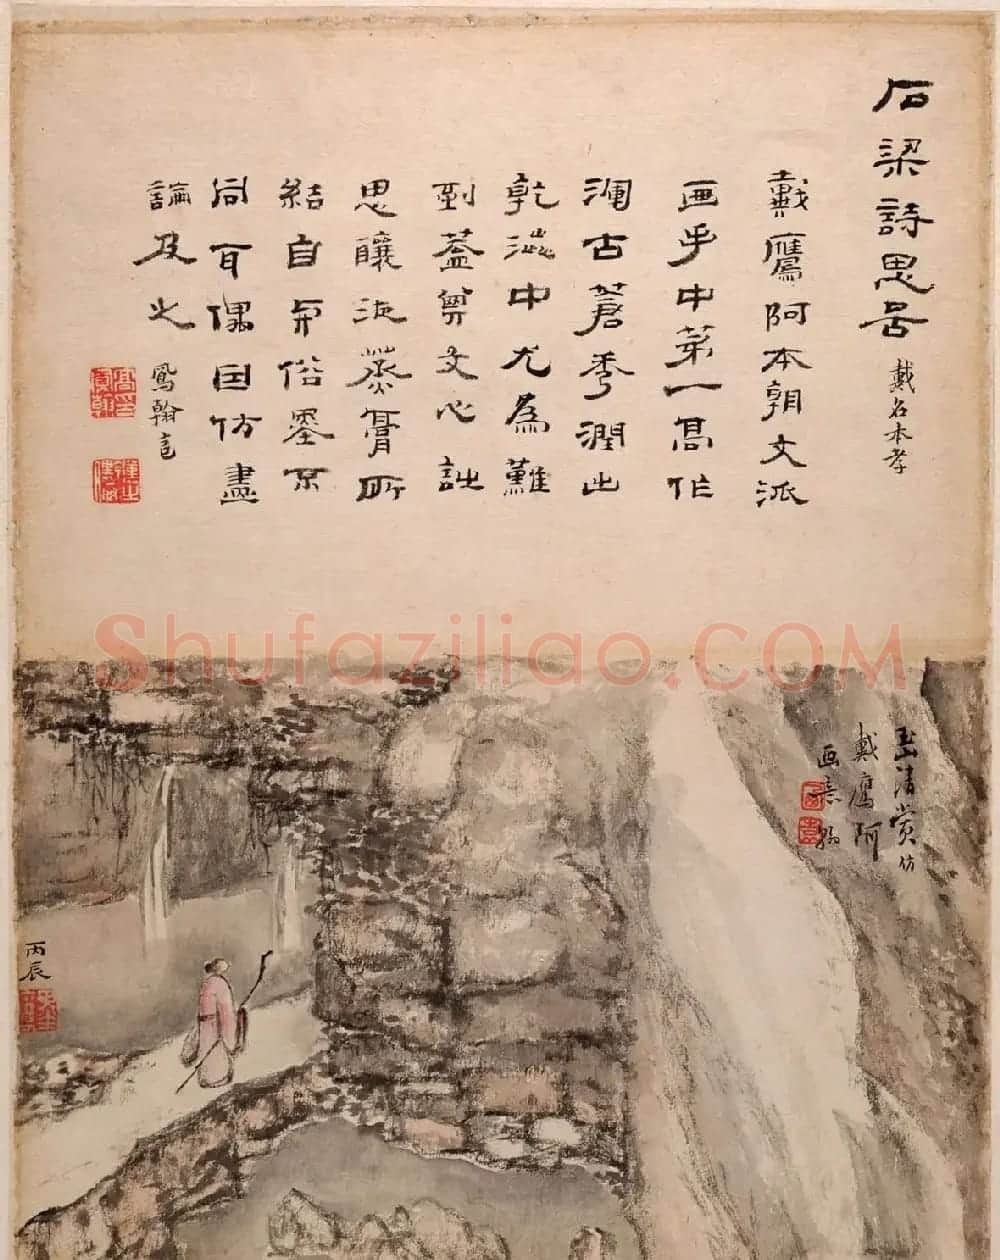 石梁詩思啚
戴名本孝
戴鷹阿本朝文派
画手中第一高作
瀾古蒼秀潤出
乾澁中尤為難
到蓋文心詘
思釀蒸膏所
結自俗墨不
同耳偶因仿畫
論及之
鳳翰
Shufaziliao.COM
清赏仿
戴鷹阿
画意
丙辰